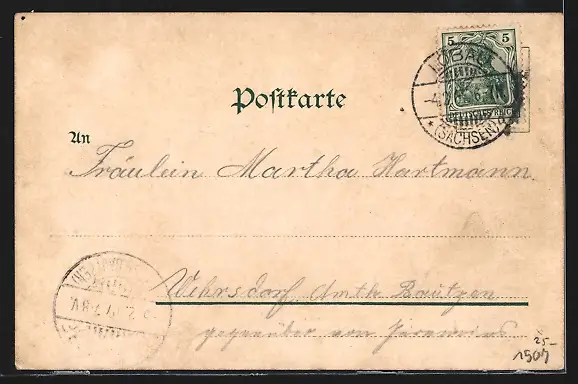 5 5
LÖBAU
(SACHSEN)
Postkarte
An
Fräulein Martha Hartmann
Wehrsdorf Amth Bautzen
gegenüber von
25-
1904